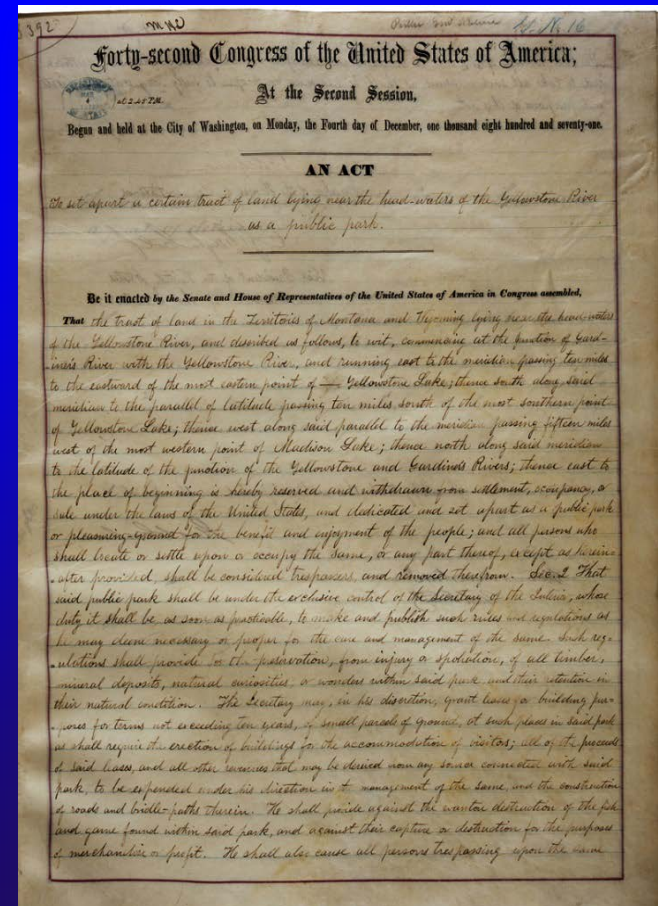 392
Forty-second Congress of the United States of America;
At the Second Session,
Begun and held at the City of Washington, on Monday, the Fourth day of December, one thousand eight hundred and seventy-one.
AN ACT
To set apart a certain tract of land lying near the head-waters of the Yellowstone River
as a public park.
Be it enacted by the Senate and House of Representatives of the United States of America in Congress assembled,
That the tract of land in the Territories of Montana and Wyoming lying near the head-waters
of the Yellowstone River, and described as follows, to wit, commencing at the junction of Gard-
iner's River with the Yellowstone River, and running east to the meridian passing ten miles
to the eastward of the most eastern point of — Yellowstone Lake; thence south along said
meridian to the parallel of latitude passing ten miles south of the most southern point
of Yellowstone Lake; thence west along said parallel to the meridian passing fifteen miles
west of the most western point of Madison Lake; thence north along said meridian
to the latitude of the junction of the Yellowstone and Gardiner's Rivers; thence east to
the place of beginning is hereby reserved and withdrawn from settlement, occupancy, or
sale under the laws of the United States, and dedicated and set apart as a public park
or pleasuring-ground for the benefit and enjoyment of the people; and all persons who
shall locate or settle upon or occupy the same, or any part thereof, except as herein-
after provided, shall be considered trespassers, and removed therefrom. Sec. 2 That
said public park shall be under the exclusive control of the Secretary of the Interior, whose
duty it shall be, as soon as practicable, to make and publish such rules and regulations as
he may deem necessary or proper for the care and management of the same. Such reg-
ulations shall provide for the preservation, from injury or spoliation, of all timber,
mineral deposits, natural curiosities, or wonders within said park and their retention in
their natural condition. The Secretary may, in his discretion, grant leases for building pur-
poses for terms not exceeding ten years, of small parcels of ground, at such places in said park
as shall require the erection of buildings for the accommodation of visitors; all of the proceeds
of said leases, and all other revenues that may be derived from any source connected with said
park, to be expended under his direction in the management of the same, and the construction
of roads and bridle-paths therein. He shall provide against the wanton destruction of the fish
and game found within said park, and against their capture or destruction for the purposes
of merchandise or profit. He shall also cause all persons trespassing upon the same